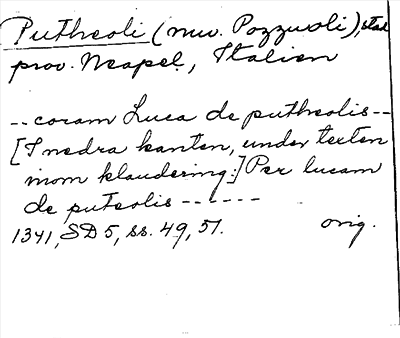 Putheoli (nuv. Pozzuoli), stad
prov. Neapel, Italien
-- coram Luca de putheolis --
[I nedra kanten, under texten
inom klaudering:] Per lucam
de puteolis ------
1341, SD 5, ss. 49, 51. orig.